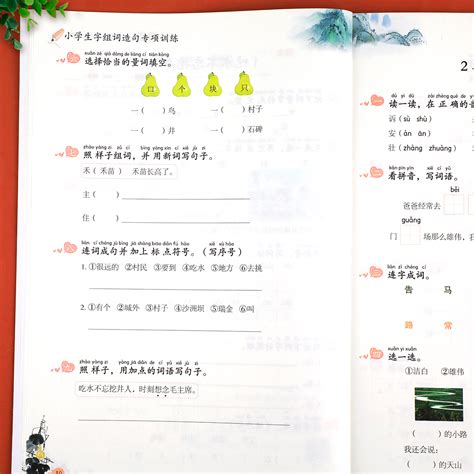 小学生字组词造句专项训练
xuǎn zé qià dàng de liàng cí tián kòng
选择恰当的量词填空。
口 个 块 只
一（ ）鸟 一（ ）村子
一（ ）井 一（ ）石碑
zhào yàng zi zǔ cí bìng yòng xīn cí xiě jù zi
照样子组词，并用新词写句子。
禾（禾苗） 禾苗长高了。
主（ ）
住（ ）
lián cí chéng jù bìng jiā shàng biāo diǎn fú hào xiě xù hào
连词成句并加上标点符号。（写序号）
1. ①很远的 ②村民 ③要到 ④吃水 ⑤地方 ⑥去挑
2. ①有个 ②城外 ③村子 ④沙洲坝 ⑤瑞金 ⑥叫
zhào yàng zi yòng jiā diǎn de cí yǔ xiě jù zi
照样子，用加点的词语写句子。
吃水不忘挖井人，时刻想念毛主席。
2
dú yi dú zài zhèng què de
读一读，在正确的
诉（sù shù）
安（ān àn）
壮（zhàng zhuàng）
kàn pīn yīn xiě cí yǔ
看拼音，写词语。
bú
爸爸经常去
guǎng
门 场那么雄伟，
lián zì chéng cí
连字成词。
告 马
路 常
xuǎn yi xuǎn
选一选。
①洁白 ②雄伟
（ ）的小路
（ ）的天山